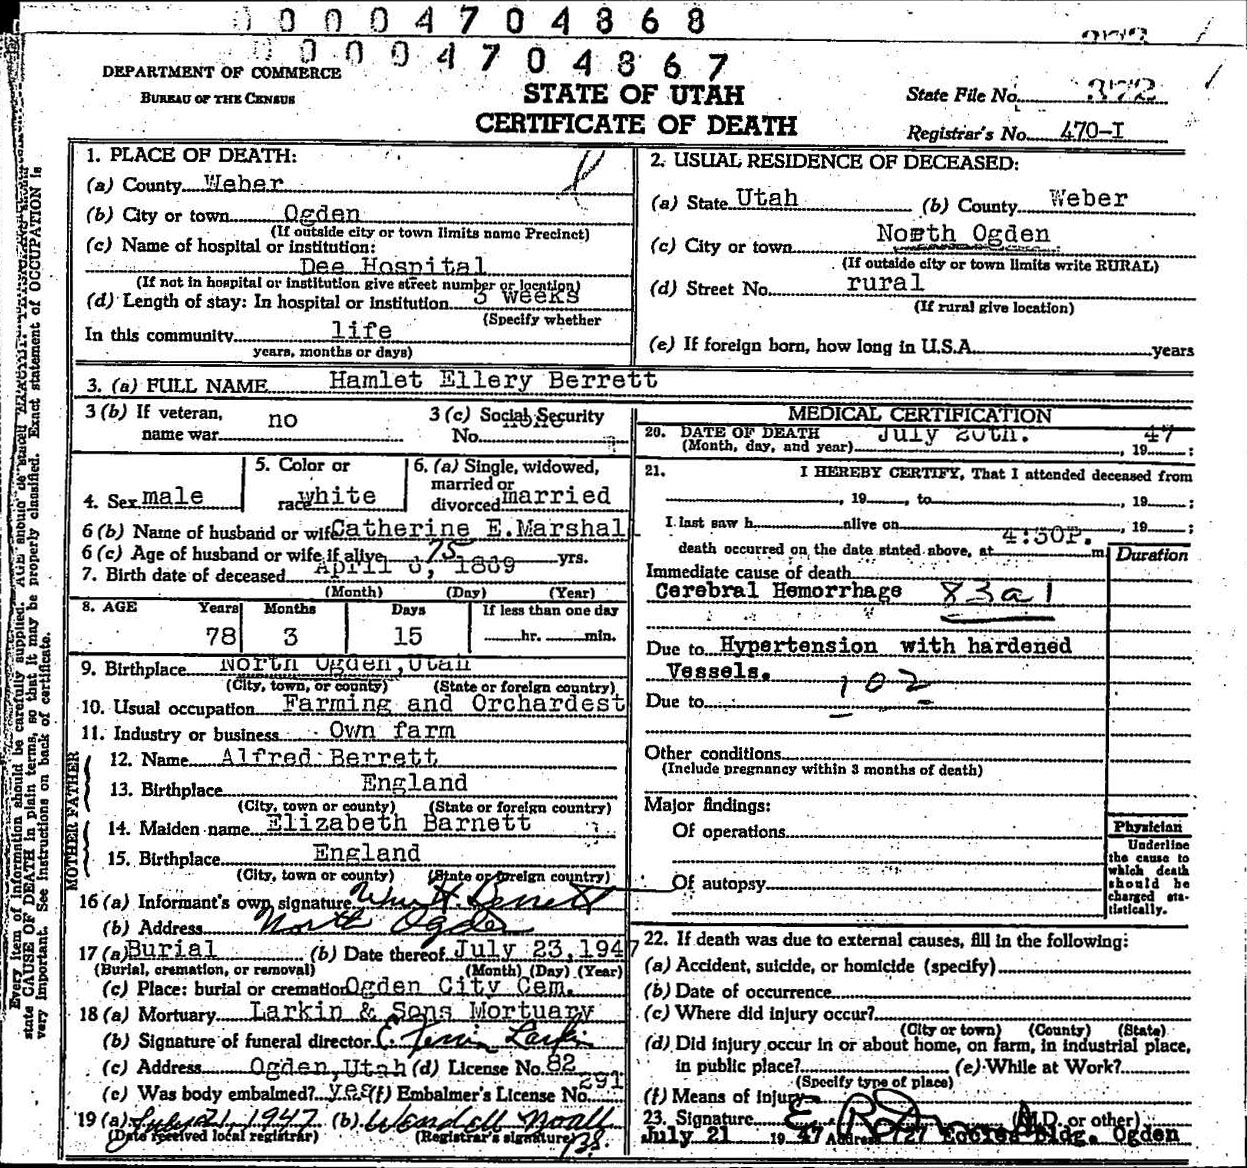 0 0 0 0 4 7 0 4 8 6 8
0 0 0 0 4 7 0 4 8 6 7
DEPARTMENT OF COMMERCE
BUREAU OF THE CENSUS
STATE OF UTAH
CERTIFICATE OF DEATH
State File No. 372
Registrar's No. 470-I
1. PLACE OF DEATH:
(a) County Weber
(b) City or town Ogden
(If outside city or town limits name Precinct)
(c) Name of hospital or institution:
Dee Hospital
(If not in hospital or institution give street number or location)
(d) Length of stay: In hospital or institution 3 weeks
(Specify whether
In this community life
years, months or days)
2. USUAL RESIDENCE OF DECEASED:
(a) State Utah (b) County Weber
(c) City or town North Ogden
(If outside city or town limits write RURAL)
(d) Street No. rural
(If rural give location)
(e) If foreign born, how long in U.S.A. years
3. (a) FULL NAME Hamlet Ellery Berrett
3 (b) If veteran, name war no
3 (c) Social Security No. none
4. Sex male
5. Color or race white
6. (a) Single, widowed, married or divorced married
6 (b) Name of husband or wife Catherine E.Marshal
6 (c) Age of husband or wife if alive 75 yrs.
7. Birth date of deceased April 6, 1869
(Month) (Day) (Year)
8. AGE Years Months Days If less than one day
78 3 15 hr. min.
9. Birthplace North Ogden, Utah
(City, town, or county) (State or foreign country)
10. Usual occupation Farming and Orchardest
11. Industry or business Own farm
FATHER
12. Name Alfred Berrett
13. Birthplace England
(City, town or county) (State or foreign country)
MOTHER
14. Maiden name Elizabeth Barnett
15. Birthplace England
(City, town or county) (State or foreign country)
16 (a) Informant's own signature Wm H. Berrett
(b) Address North Ogden
17 (a) Burial (b) Date thereof July 23, 1947
(Burial, cremation, or removal) (Month) (Day) (Year)
(c) Place: burial or cremation Ogden City Cem.
18 (a) Mortuary Larkin & Sons Mortuary
(b) Signature of funeral director Larkin
(c) Address Ogden, Utah (d) License No. 82
(e) Was body embalmed? yes (f) Embalmer's License No. 291
19 (a) July 21, 1947 (b) Wendell Noall
(Date received local registrar) (Registrar's signature)
MEDICAL CERTIFICATION
20. DATE OF DEATH July 20th. 1947;
(Month, day, and year)
21. I HEREBY CERTIFY, That I attended deceased from
, 19 , to , 19 ;
I last saw h alive on , 19 ;
death occurred on the date stated above, at 4:30P. m.
Duration
Immediate cause of death
Cerebral Hemorrhage 83a1
Due to Hypertension with hardened
Vessels. 102
Due to
Other conditions
(Include pregnancy within 3 months of death)
Major findings:
Of operations
Of autopsy
Physician
Underline
the cause to
which death
should be
charged sta-
tistically.
22. If death was due to external causes, fill in the following:
(a) Accident, suicide, or homicide (specify)
(b) Date of occurrence
(c) Where did injury occur?
(City or town) (County) (State)
(d) Did injury occur in or about home, on farm, in industrial place,
in public place? (e) While at Work?
(Specify type of place)
(f) Means of injury
23. Signature (M.D. or other)
July 21 1947 Address 727 Eccles Bldg. Ogden
Every item of information should be carefully supplied. AGE should be stated EXACTLY.
state CAUSE OF DEATH in plain terms, so that it may be properly classified. Exact statement of OCCUPATION is
very important. See instructions on back of certificate.